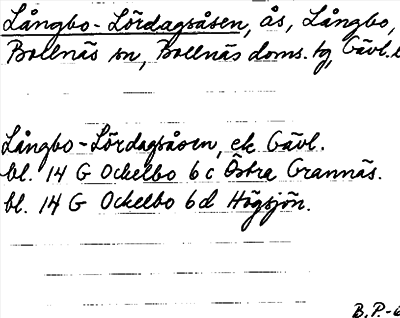 Långbo-Lördagsåsen, ås, Långbo,
Bollnäs sn, Bollnäs doms. tg, Gävl.
Långbo-Lördagsåsen, ek Gävl.
bl. 14 G Ockelbo 6 c Östra Grannäs.
bl. 14 G Ockelbo 6 d Högsjön.
B.P.-6